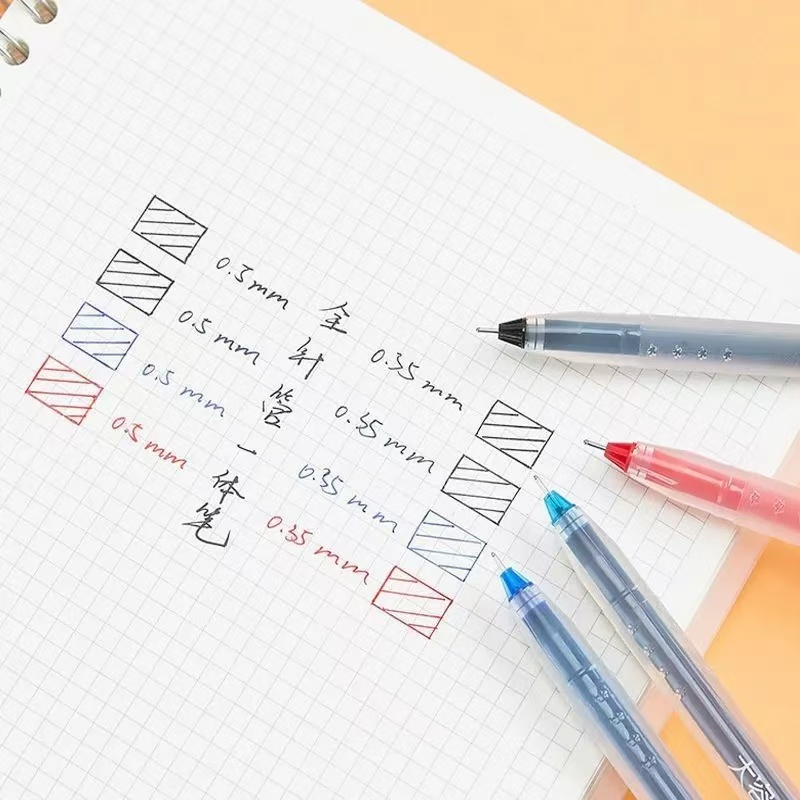 0.5mm
0.5mm
0.5mm
0.5mm
全针管一体笔
0.35mm
0.35mm
0.35mm
0.35mm
大容